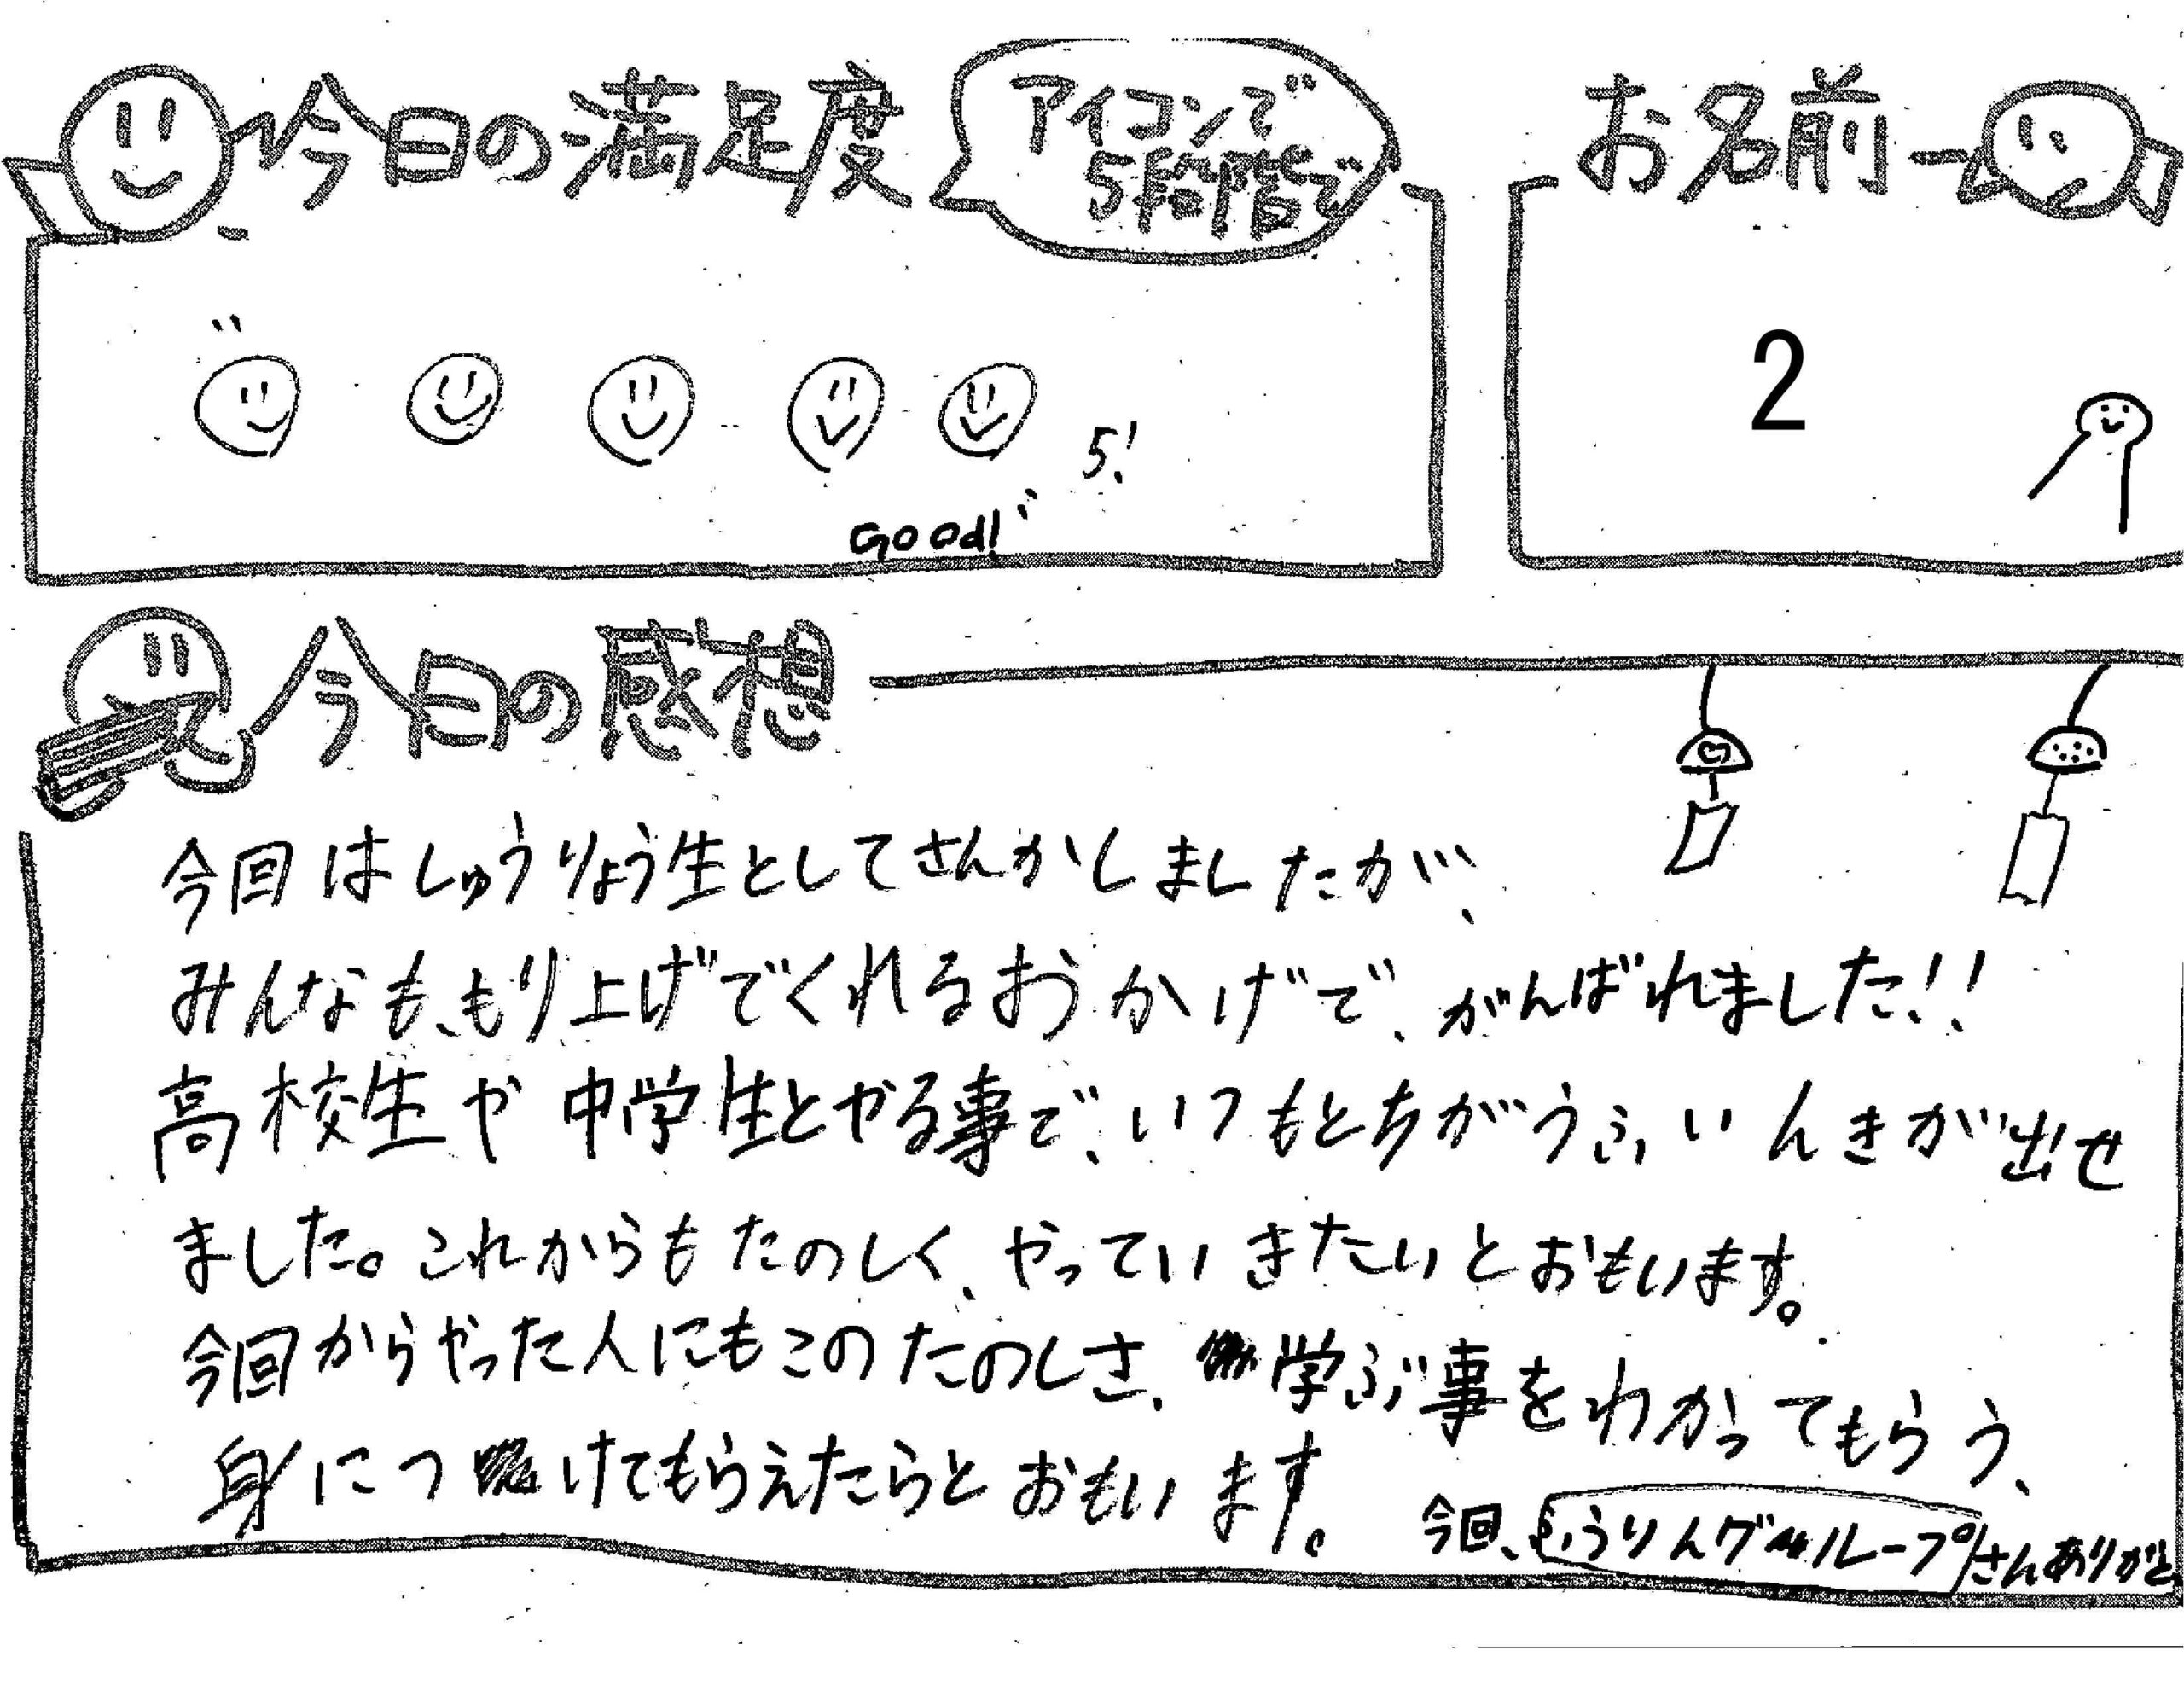 今日の満足度
アイコンで
5段階で
お名前
2
5!
Good!
今日の感想
今回はしゅうりょう生としてさんかしましたが、
みんなも、もり上げでくれるおかげで、がんばれました!!
高校生や中学生とやる事で、いつもとちがうふいんきが出せ
ました。これからもたのしく、やっていきたいとおもいます。
今回からやった人にもこのたのしさ、学ぶ事をわかってもらう、
身につけてもらえたらとおもいます。
今回、ふうりんグループさんありがと